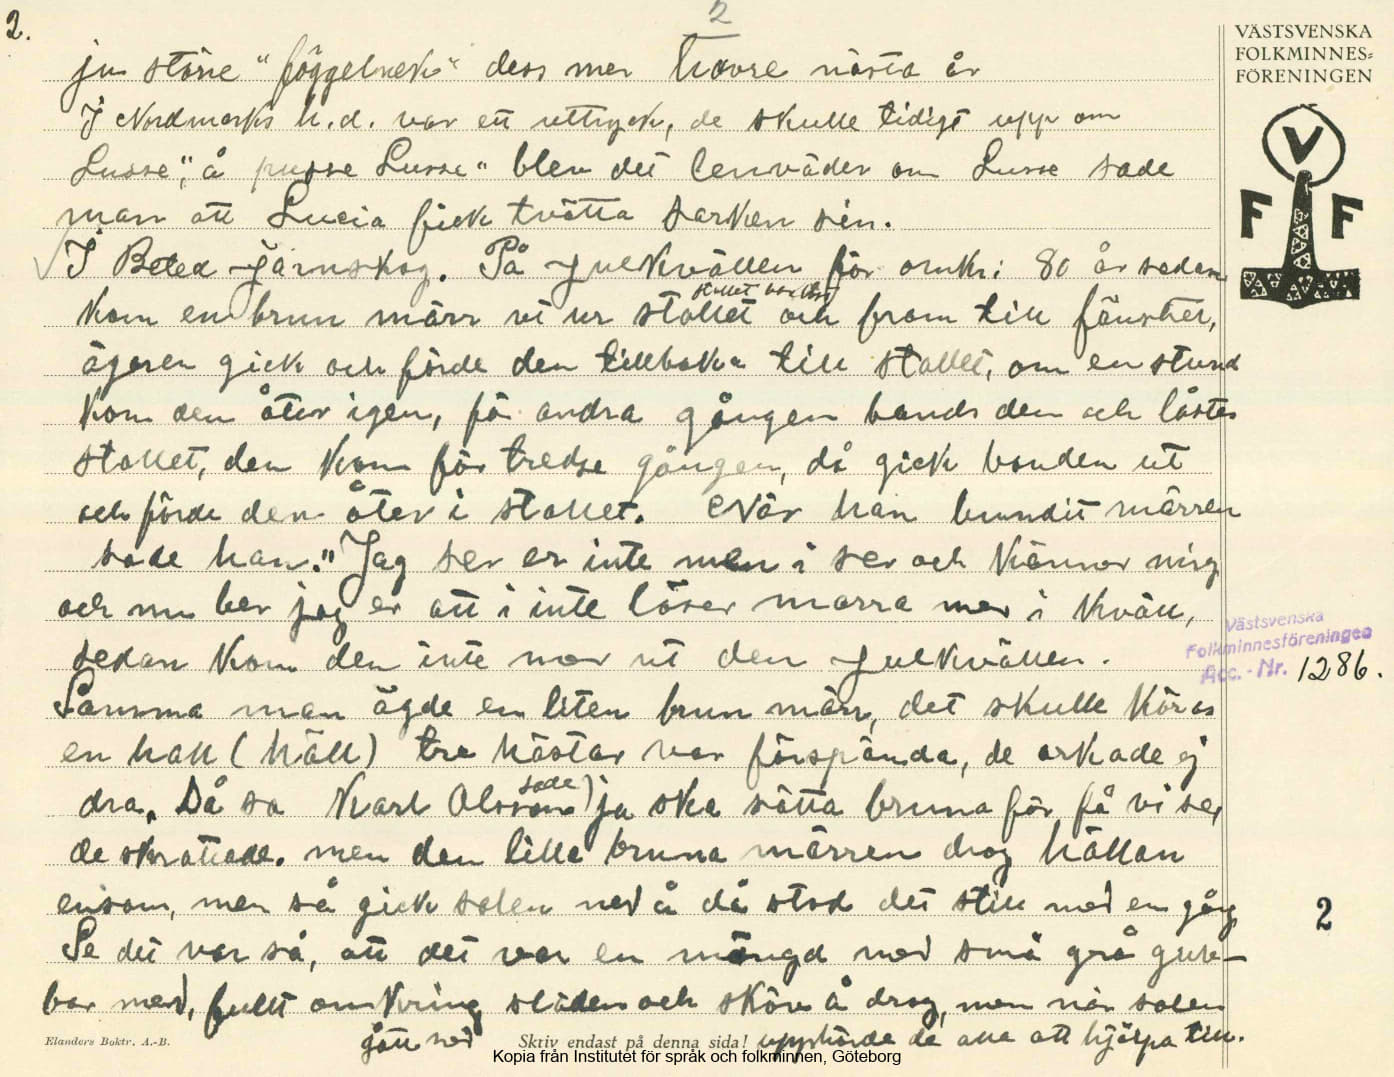 2.
2
VÄSTSVENSKA
FOLKMINNES-
FÖRENINGEN
V
F F
ju större "föggelnek" dess mer havre nästa år
I Nordmarks h.d. var ett uttryck, de skulle tidigt upp om
Lusse", å pusse Lusse" blev det lenväder om Lusse sade
man att Lucia fick tvätta särken sin.
I Beted Järnskog. På Julkvällen för omkr: 80 år sedan
stallet
kom en brun märr ut ur stallet och fram till fänstret,
ägaren gick och förde den tillbaka till stallet, om en stund
kom den åter igen, för andra gången bands den och låstes
stallet, den kom för tredje gången, då gick bonden ut
och förde den åter i stallet. När han bundit märren
sade han." Jag ser er inte men i ser och känner mig
och nu ber jag er att i inte löser marra mer i kväll,
sedan kom den inte mer ut den Julkvällen.
Västsvenska
Folkminnesföreningen
Acc.-Nr. 1286.
Samma man ägde en liten brun märr, det skulle köras
en hall (häll) tre hästar var förspända, de orkade ej
sade)
dra. Då sa Karl Olsson ja ska sätta bruna för få vi se,
de skrattade. men den lilla bruna märren drog hällan
ensam, men så gick solen ned å då stod det still med en gång
2
Se det var så, att det var en mängd med små grå gub-
bar med, fullt omkring släden och sköv å drog, men när solen
gått ned upphörde de alla att hjälpa till.
Elanders Boktr. A.-B.
Skriv endast på denna sida!
Kopia från Institutet för språk och folkminnen, Göteborg